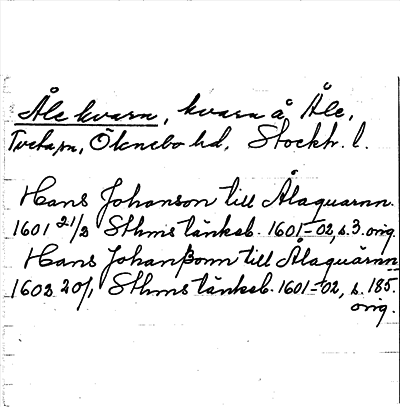 Åle kvarn, kvarn å Åle,
Tveta sn, Öknebo hd, Stockh. l.
Hans Johanson till Ålaquarnn.
1601 21/2 Sthms tänkeb. 1601-02, s. 3. orig.
Hans Johanßonn till Ålaquärnn
1602 20/1 Sthms tänkeb. 1601-02, s. 185.
orig.